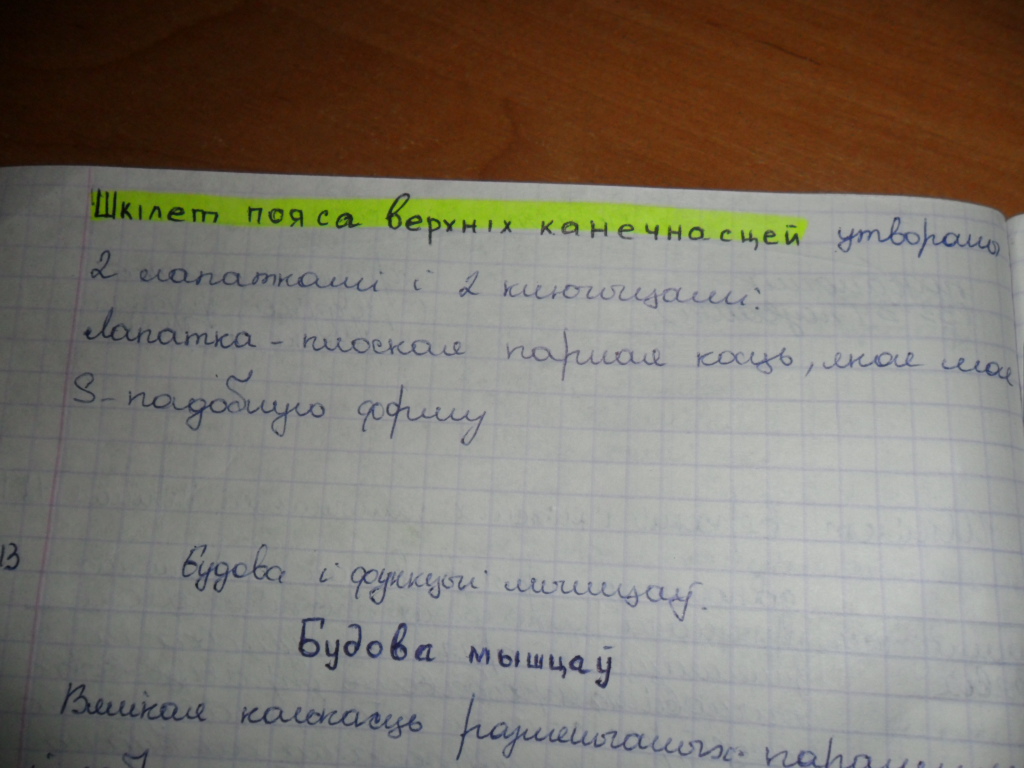 Шкілет пояса верхніх канечнасцей утвораны
2 лапаткамі і 2 ключыцамі:
Лапатка - плоская парная косць, якая мае
S-падобную форму
13
Будова і функцыі мышцаў.
Будова мышцаў
Вялікая колькасць